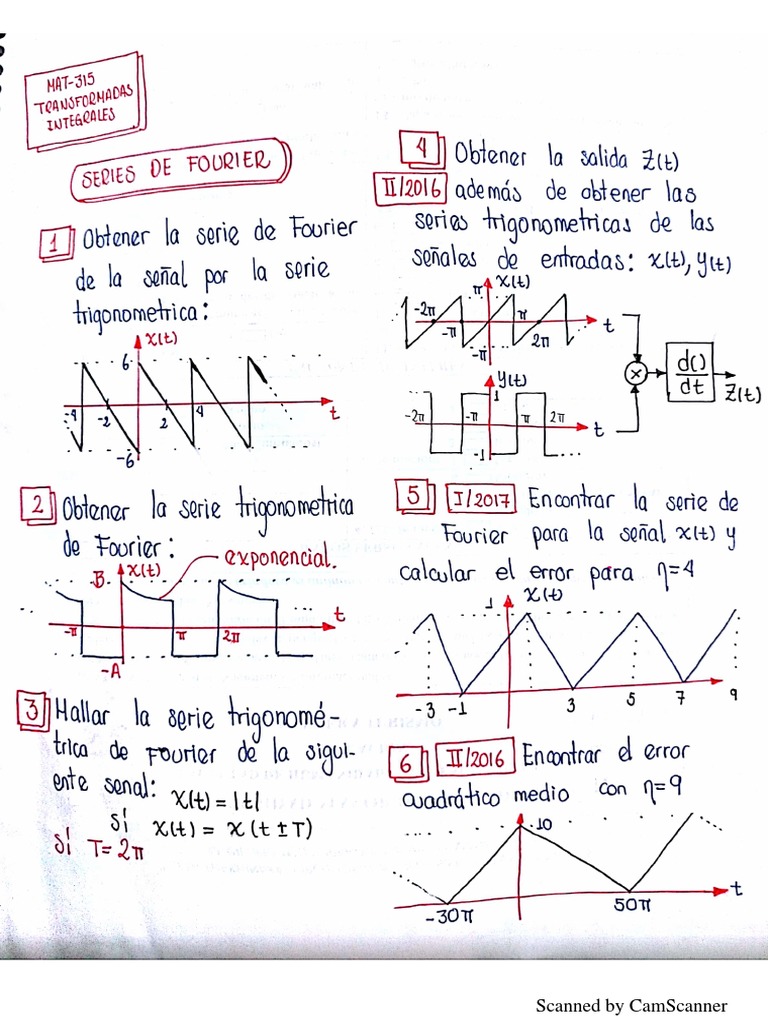 MAT-315
TRANSFORMADAS
INTEGRALES
SERIES DE FOURIER
1 Obtener la serie de Fourier
de la señal por la serie
trigonometrica:
x(t)
6
-4 -2 2 4 t
-6
2 Obtener la serie trigonometrica
de Fourier:
exponencial.
B x(t)
t
-π π 2π
-A
3 Hallar la serie trigonomé-
trica de FOURIER de la sigui-
ente senal:
x(t) = |t|
sí x(t) = x(t ± T)
sí T = 2π
4 Obtener la salida z(t)
II/2016 además de obtener las
series trigonometricas de las
señales de entradas: x(t), y(t)
π x(t)
-2π -π π 2π t
-π
y(t)
1
-2π -π π 2π t
-1
×
d()
dt
z(t)
5 I/2017 Encontrar la serie de
Fourier para la señal x(t) y
calcular el error para η=4
1 x(t)
-3 -1 3 5 7 9
6 II/2016 Encontrar el error
cuadrático medio con η=9
10
t
-30π 50π
Scanned by CamScanner